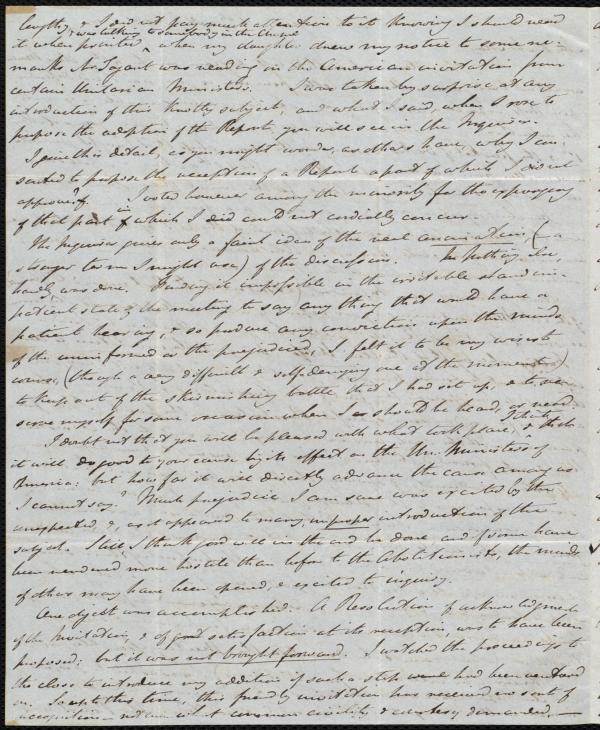 lengthy, & I did not pay much attention to it knowing I should read
& was talking to somebody in the Chapel
it when printed, when my daughter drew my notice to some re-
marks Mr Tagart was reading on the American invitation from
certain Unitarian Ministers. I was taken by surprise at any
introduction of this knotty subject, and what I said, when I rose to
propose the adoption of the Report, you will see in the Inquirer.
I give this detail, as you might wonder, as others have, why I con-
sented to propose the reception of a Report a part of which I did not
approve. I voted however among the minority for the expunging
of that part in which I did not cordially concur.
The Inquirer gives only a faint idea of the real
stronger term I might use) of the discussion.
hardly was done. Finding it impossible in the irritable and im-
patient state of the meeting to say any thing that would have a
patient hearing, & so produce any conviction upon the minds
of the uninformed or the prejudiced, I felt it to be my wisest
course, (though a very difficult & self-denying one at the moment)
to keep out of the skirmishing battle that I had set up, & to re-
serve myself for some occasion when I should be heard, or read.
I doubt not that you will be pleased with what took place, & I think
it will do good to your cause by its effect on the Un. Ministers of
America: but how far it will directly advance the cause among us
I cannot say. Much prejudice I am sure was excited by the
unexpected &, as it appeared to many, improper introduction of the
subject. Still, I think good will in the end be done, and if some have
been rendered more hostile than before to the Abolitionists, the minds
of others may have been opened, & excited to inquiry.
One object was accomplished. A Resolution of acknowledgment
of the Invitation, & of great satisfaction at its reception, was to have been
proposed: but it was not brought forward. I watched the proceedings to
the close to introduce my addition if such a step had been ventured
on. So up to this time, this friendly invitation has received no sort of
recognition — not even what common civility & courtesy demanded, —